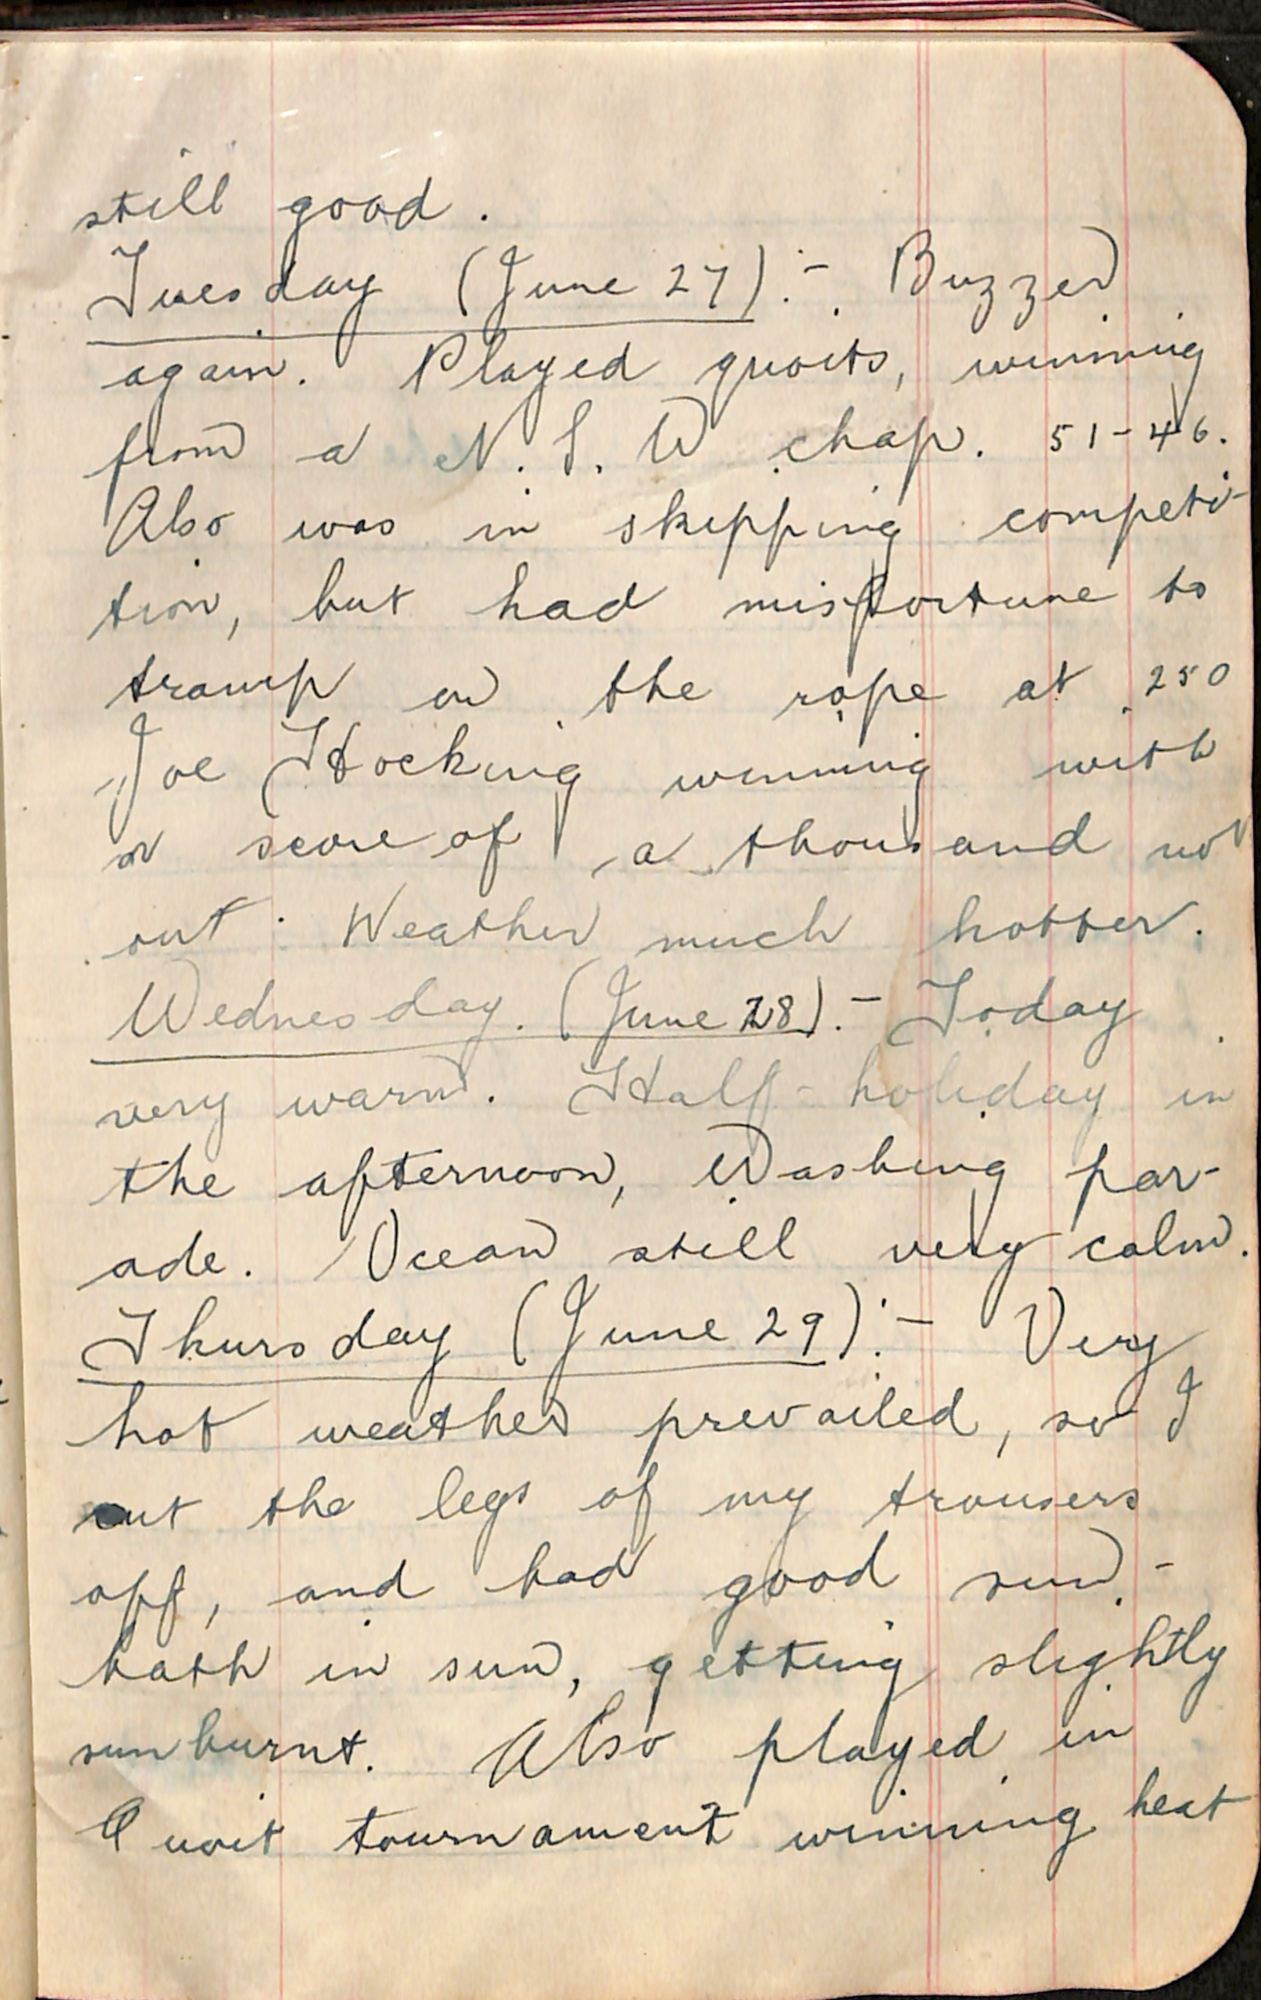 still good.
Tuesday (June 27):- Buzzer
again. Played quoits, winning
from a N.S.W chap. 51-46.
Also was in skipping competi-
tion, but had misfortune to
tramp on the rope at 250
Joe Hocking winning with
a score of a thousand not
out. Weather much hotter.
Wednesday. (June 28).- Today
very warm. Half-holiday in
the afternoon, Washing par-
ade. Ocean still very calm.
Thursday (June 29):- Very
hot weather prevailed, so I
cut the legs of my trousers
off, and had good sun-
bath in sun, getting slightly
sunburnt. Also played in
Quoit tournament winning heat